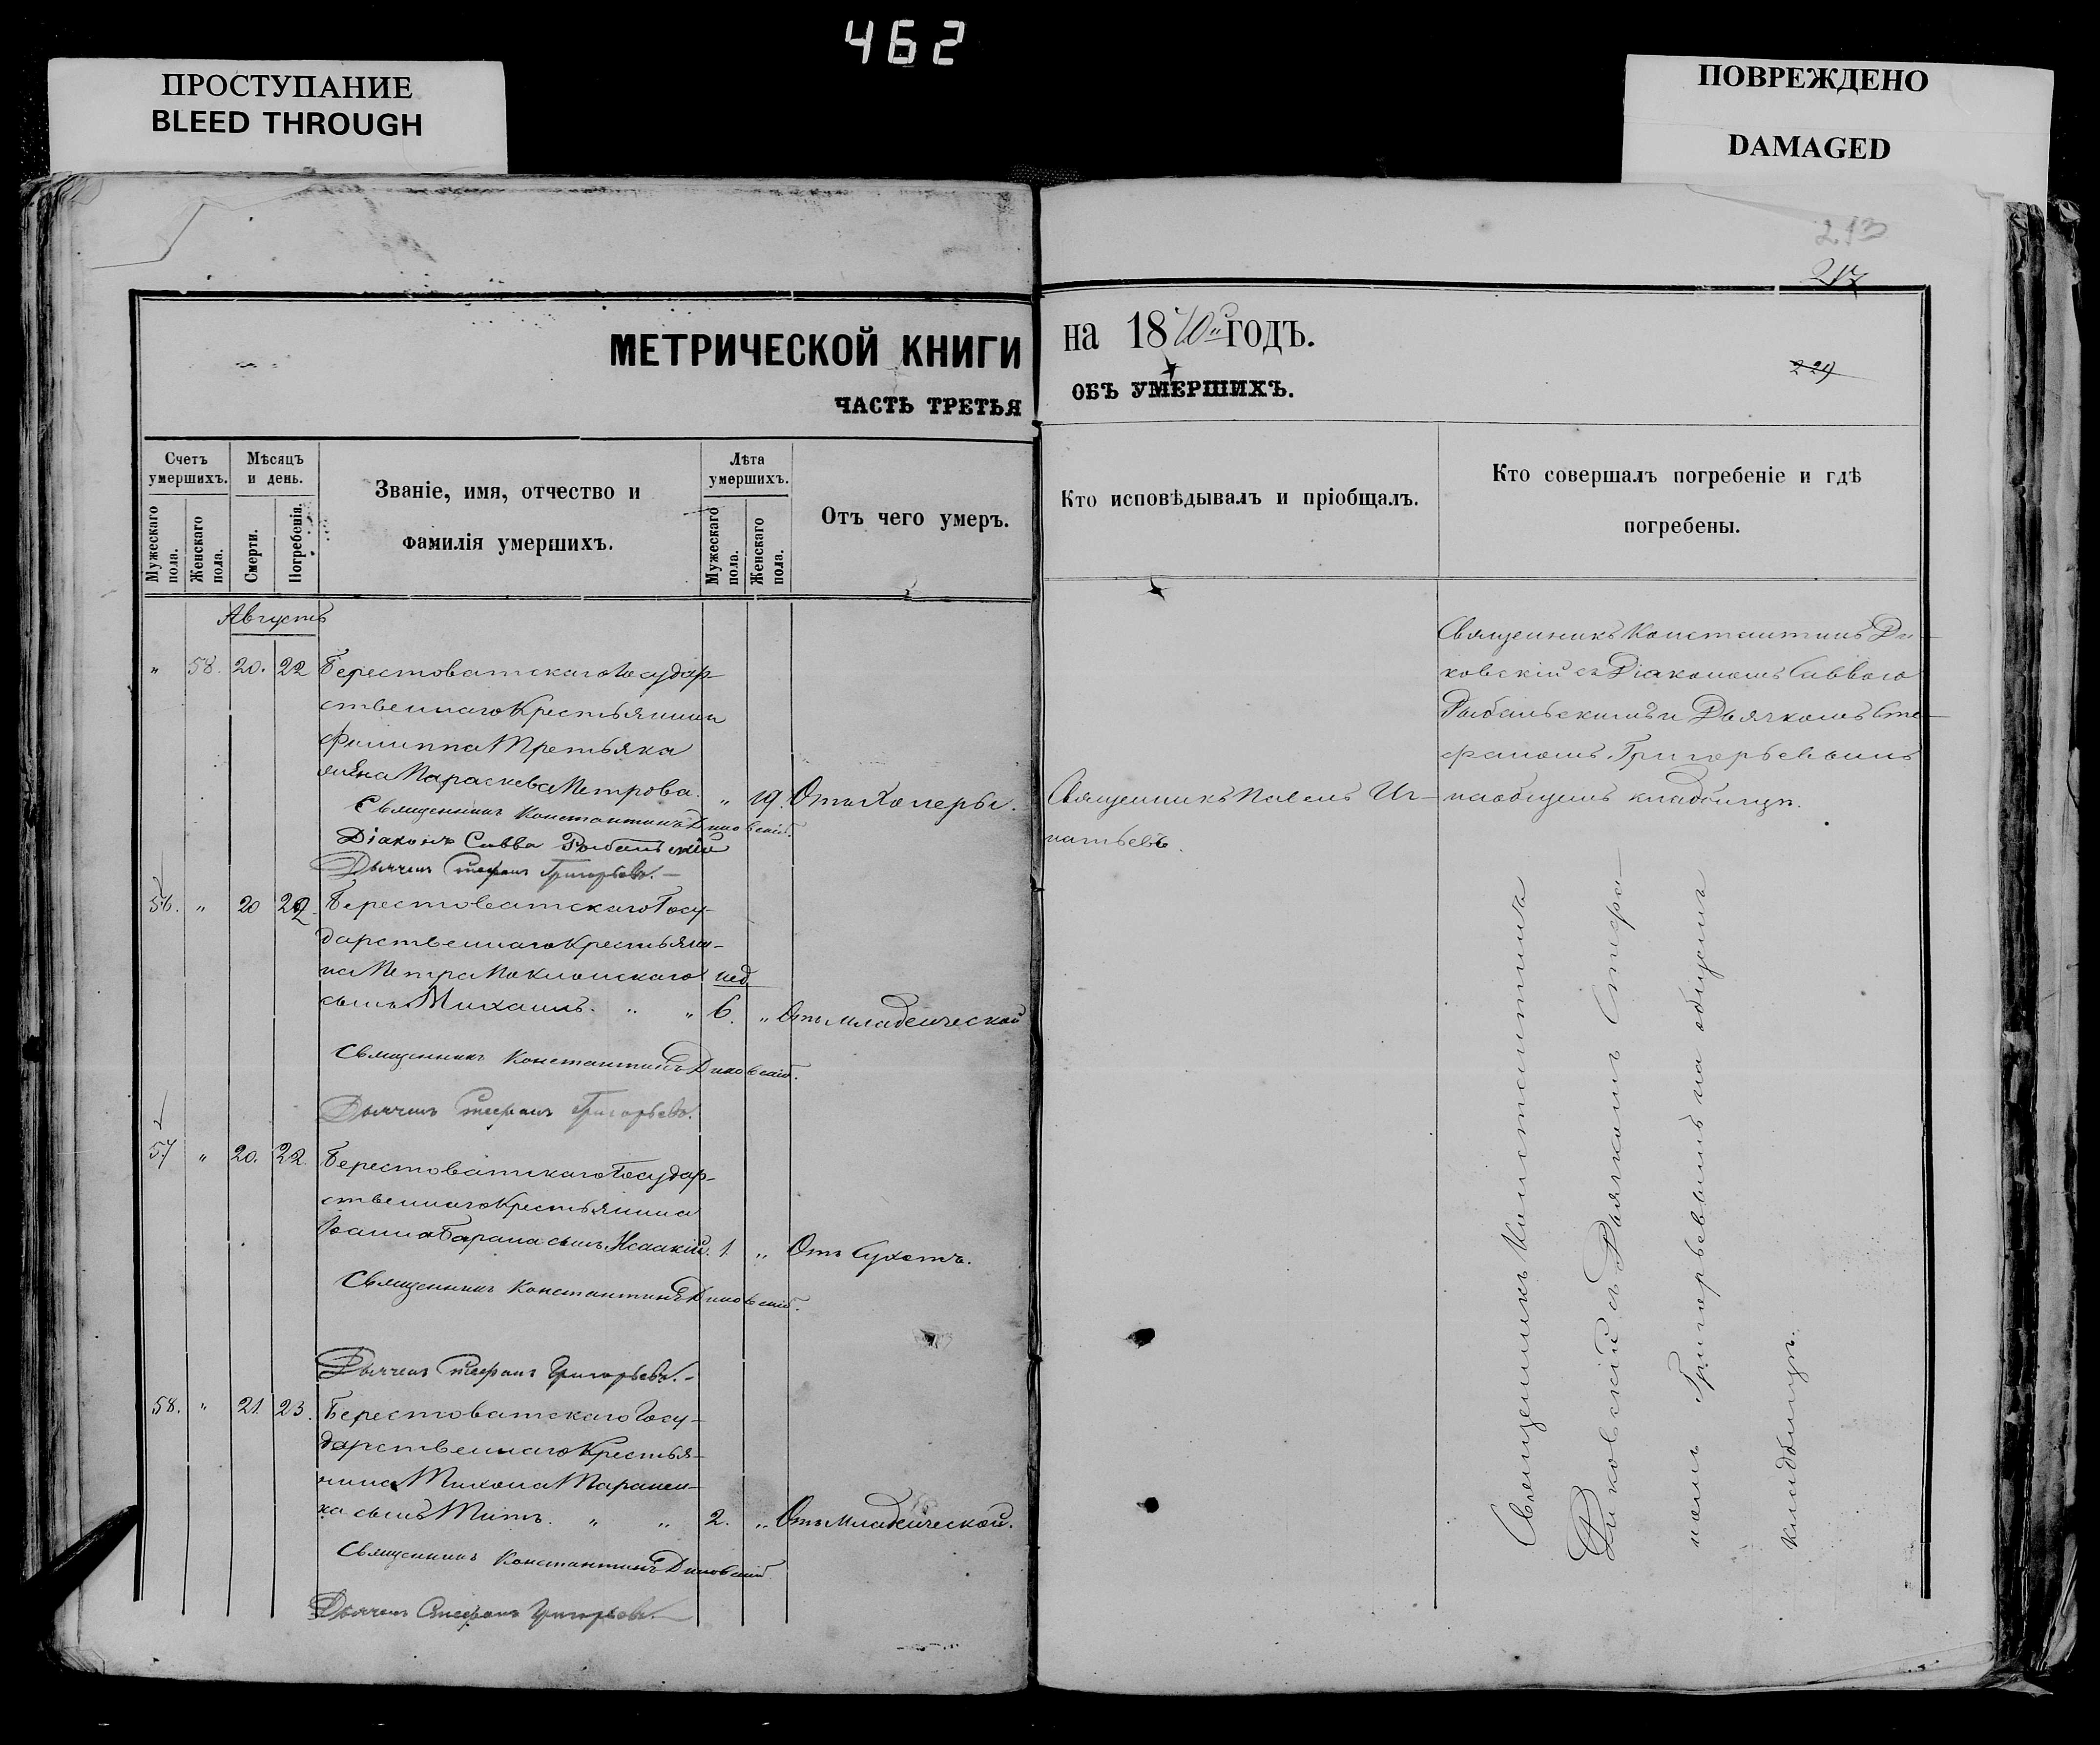 462
ПРОСТУПАНИЕ
BLEED THROUGH
ПОВРЕЖДЕНО
DAMAGED
213
217
229
МЕТРИЧЕСКОЙ КНИГИ на 1870 ГОДЪ.
ЧАСТЬ ТРЕТЬЯ ОБЪ УМЕРШИХЪ.
Счетъ умершихъ.
Мужескаго пола.
Женскаго пола.
Мѣсяцъ и день.
Смерти.
Погребенія.
Званіе, имя, отчество и
фамилія умершихъ.
Лѣта умершихъ.
Мужескаго пола.
Женскаго пола.
Отъ чего умеръ.
Кто исповѣдывалъ и пріобщалъ.
Кто совершалъ погребеніе и гдѣ
погребены.
Августъ
" 58. 20. 22 Берестоватскаго Государ-
ственнаго Крестьянина
Филиппа Третьяка
жена Параскева Петрова. " 19. Отъ Холеры.
Священникъ Павелъ Иг-
натьевъ.
Священникъ Константинъ Ди-
ковскій съ Діакономъ Саввою
Рыбальскимъ и Дьячкомъ Сте-
фаномъ Григорьевымъ
на общемъ кладбищѣ.
Священникъ Константинъ Диковскій.
Діаконъ Савва Рыбальскій
Дьячекъ Стефанъ Григорьевъ.
56. " 20 22. Берестоватскаго Госу-
дарственнаго Крестьяни-
на Петра Поклонскаго нед.
сынъ Михаилъ. " " 6. " Отъ младенческой
Священникъ Константинъ Диковскій.
Дьячекъ Стефанъ Григорьевъ.
57 " 20. 22. Берестоватскаго Государ-
ственнаго Крестьянина
Іоанна Барана сынъ Исаакій. 1. " Отъ Сухотъ.
Священникъ Константинъ Диковскій.
Дьячекъ Стефанъ Григорьевъ.
58. " 21. 23. Берестоватскаго Госу-
дарственнаго Крестья-
нина Тихона Таранен-
ка сынъ Титъ. " " 2. " Отъ младенческой.
Священникъ Константинъ Диковскій
Дьячекъ Стефанъ Григорьевъ.
Священникъ Константинъ
Диковскій съ Дьячкомъ Стефа-
номъ Григорьевымъ на общемъ
кладбищѣ.